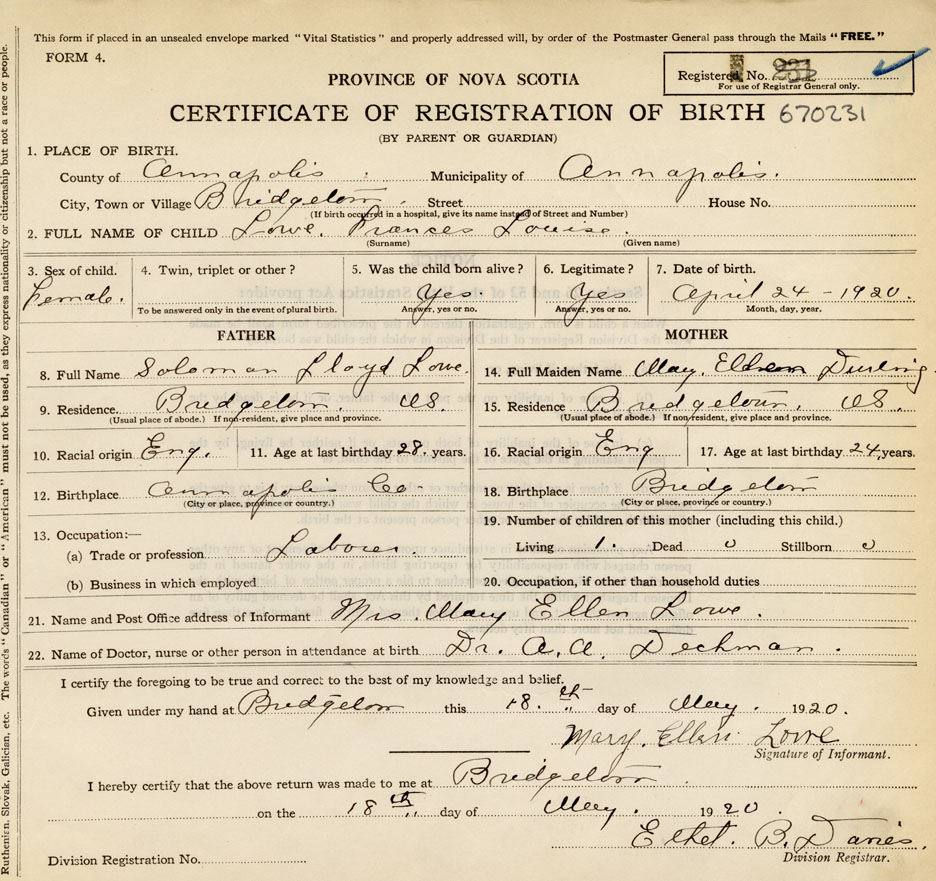 This form if placed in an unsealed envelope marked "Vital Statistics" and properly addressed will, by order of the Postmaster General pass through the Mails "FREE."
FORM 4.
Registered No.
For use of Registrar General only.
PROVINCE OF NOVA SCOTIA
CERTIFICATE OF REGISTRATION OF BIRTH 670231
(BY PARENT OR GUARDIAN)
1. PLACE OF BIRTH.
County of Annapolis Municipality of Annapolis.
City, Town or Village Bridgetown. Street House No.
(If birth occurred in a hospital, give its name instead of Street and Number)
2. FULL NAME OF CHILD Lowe. Frances Louise.
(Surname) (Given name)
3. Sex of child. 4. Twin, triplet or other? 5. Was the child born alive? 6. Legitimate? 7. Date of birth.
Female. Yes. Yes April 24 - 1920.
To be answered only in the event of plural birth. Answer, yes or no. Answer, yes or no. Month, day, year.
FATHER MOTHER
8. Full Name Soloman Lloyd Lowe. 14. Full Maiden Name May. Durling
9. Residence Bridgetown. 15. Residence Bridgetown.
(Usual place of abode.) If non-resident, give place and province. (Usual place of abode.) If non-resident, give place and province.
10. Racial origin Eng. 11. Age at last birthday 28. years. 16. Racial origin Eng 17. Age at last birthday 24, years.
12. Birthplace Annapolis Co- 18. Birthplace Bridgetown
(City or place, province or country.) (City or place, province or country.)
13. Occupation:— 19. Number of children of this mother (including this child.)
(a) Trade or profession Laborer. Living 1. Dead 0 Stillborn 0
(b) Business in which employed 20. Occupation, if other than household duties
21. Name and Post Office address of Informant Mrs. Mary Ellen Lowe.
22. Name of Doctor, nurse or other person in attendance at birth Dr. A. A. Dechman.
I certify the foregoing to be true and correct to the best of my knowledge and belief.
Given under my hand at Bridgetown this 18.th day of May. 1920.
Mary. Ellen Lowe
Signature of Informant.
I hereby certify that the above return was made to me at Bridgetown
on the 18th day of May. 1920
Ethel. B. Davies.
Division Registrar.
Division Registration No.
Ruthenian, Slovak, Galician, etc. The words "Canadian" or "American" must not be used, as they express nationality or citizenship but not a race or people.